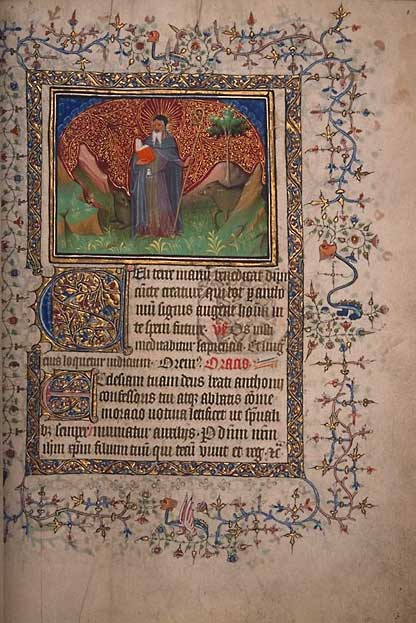 manu benedicent dnm
cuncte creature qui tot p antho
nium signis in
te spem future. V Os iusti
meditabitur sapientiam. Et ling
eius loquetur iudicium. Orem9. Oracio
Ecclesiam tuam deus beati anthonij
confessoris tui atq3 abbatis come
moracio votiua letificet ut spuali
b9 semper muniatur auxilijs. P dnm nrm
ihm xpm filium tuu qui tecu viuit et reg. &c